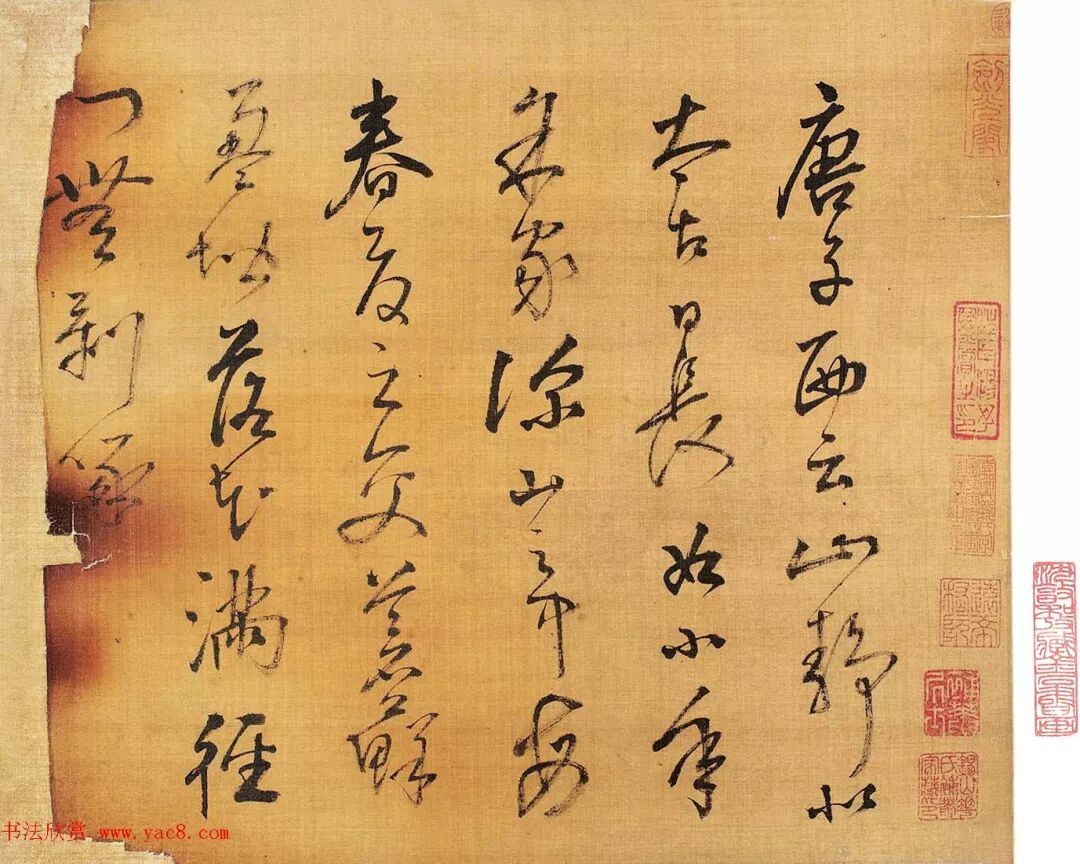 唐子西云山靜似
太古日長如小年
余家深山之中每
春夏之交蒼蘚
盈堦落花滿徑
門無剥啄
书法欣赏 www.yac8.com